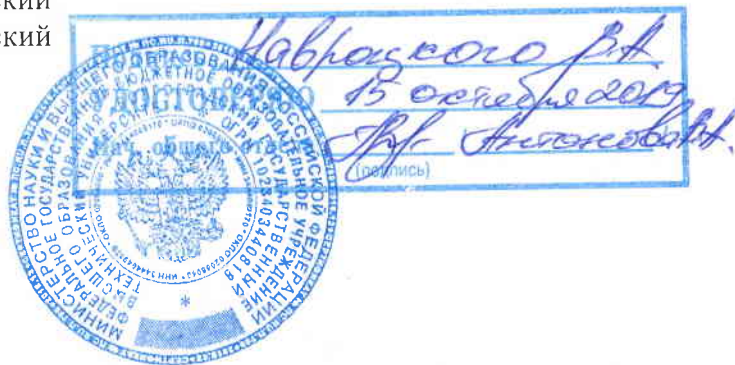 ский
ский
Навроцкого В.А.
УДОСТОВЕРЯЮ 15 октября 2019
Нач. общего отдела Антонова
(подпись)
МИНИСТЕРСТВО НАУКИ И ВЫСШЕГО ОБРАЗОВАНИЯ РОССИЙСКОЙ ФЕДЕРАЦИИ
ФЕДЕРАЛЬНОЕ ГОСУДАРСТВЕННОЕ БЮДЖЕТНОЕ ОБРАЗОВАТЕЛЬНОЕ УЧРЕЖДЕНИЕ
ВЫСШЕГО ОБРАЗОВАНИЯ ГОСУДАРСТВЕННЫЙ
ТЕХНИЧЕСКИЙ УНИВЕРСИТЕТ ОГРН 1023403440818